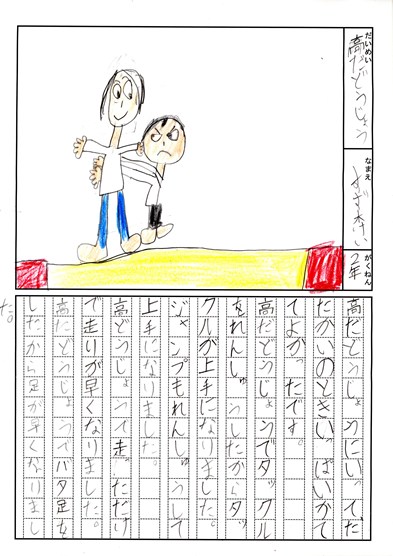 だいめい
高だどうじょう
なまえ
がくねん
2年
高だどうじょうにいって、だ
たかいのときいっぱいかて
てよかったです。
高だどうじょうでタックル
をれんしゅうしたからタッ
クルが上手になりました。
ジャンプもれんしゅうして
上手になりました。
高どうじょうで走っただけ
で走りが早くなりました。
高だどうじょうでバタ足を
したから足が早くなりまし
た。